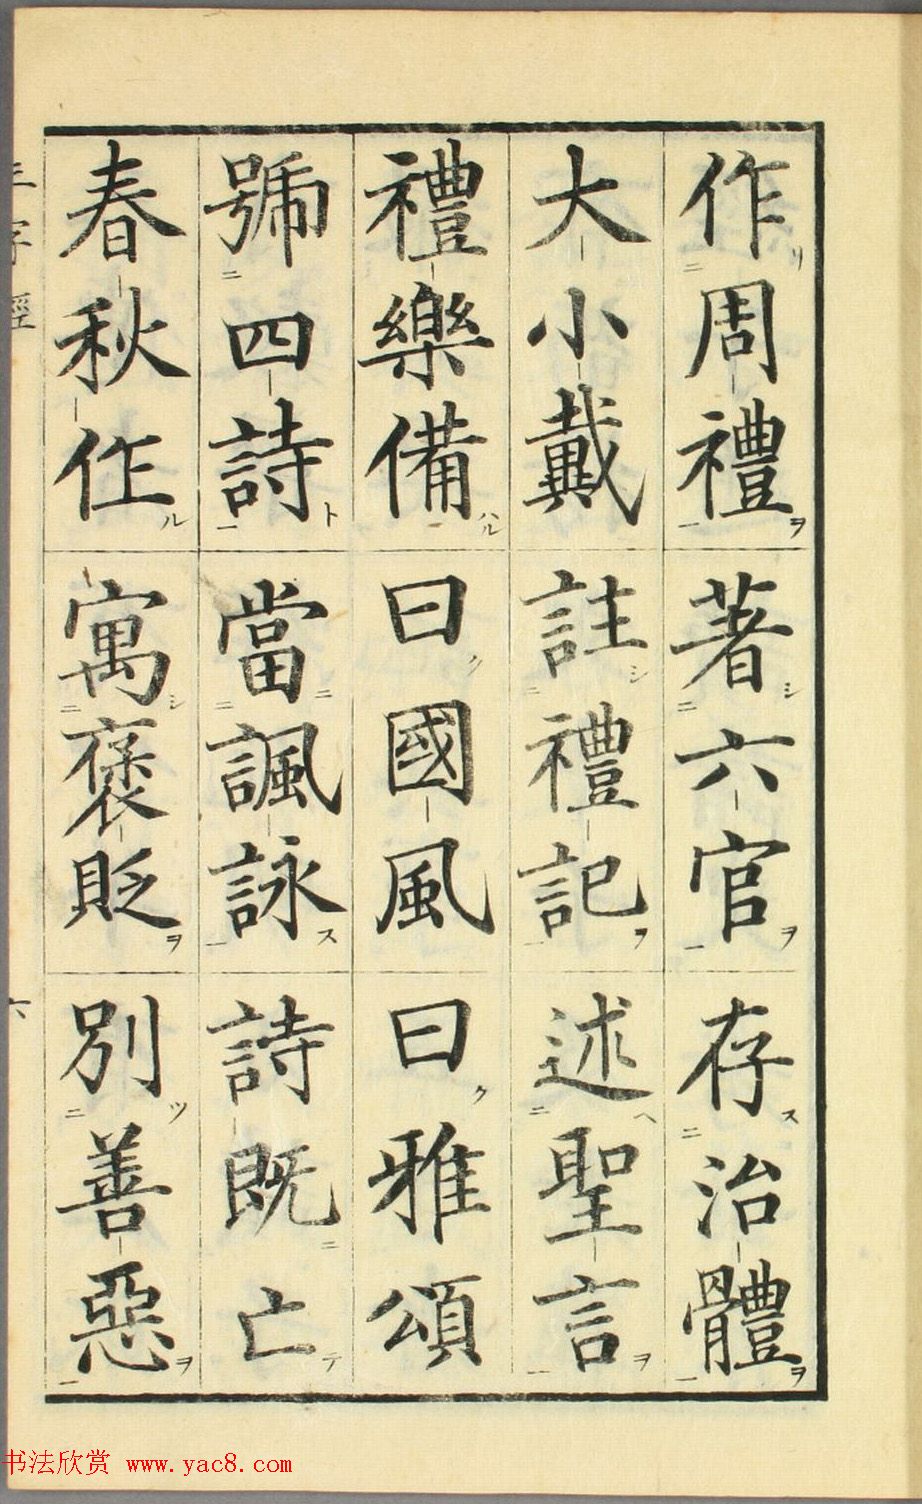 作周禮著六官存治體
大小戴註禮記述聖言
禮樂備曰國風曰雅頌
號四詩當諷詠詩既亡
春秋作寓褒貶別善惡
三字經 六
书法欣赏 www.yac8.com